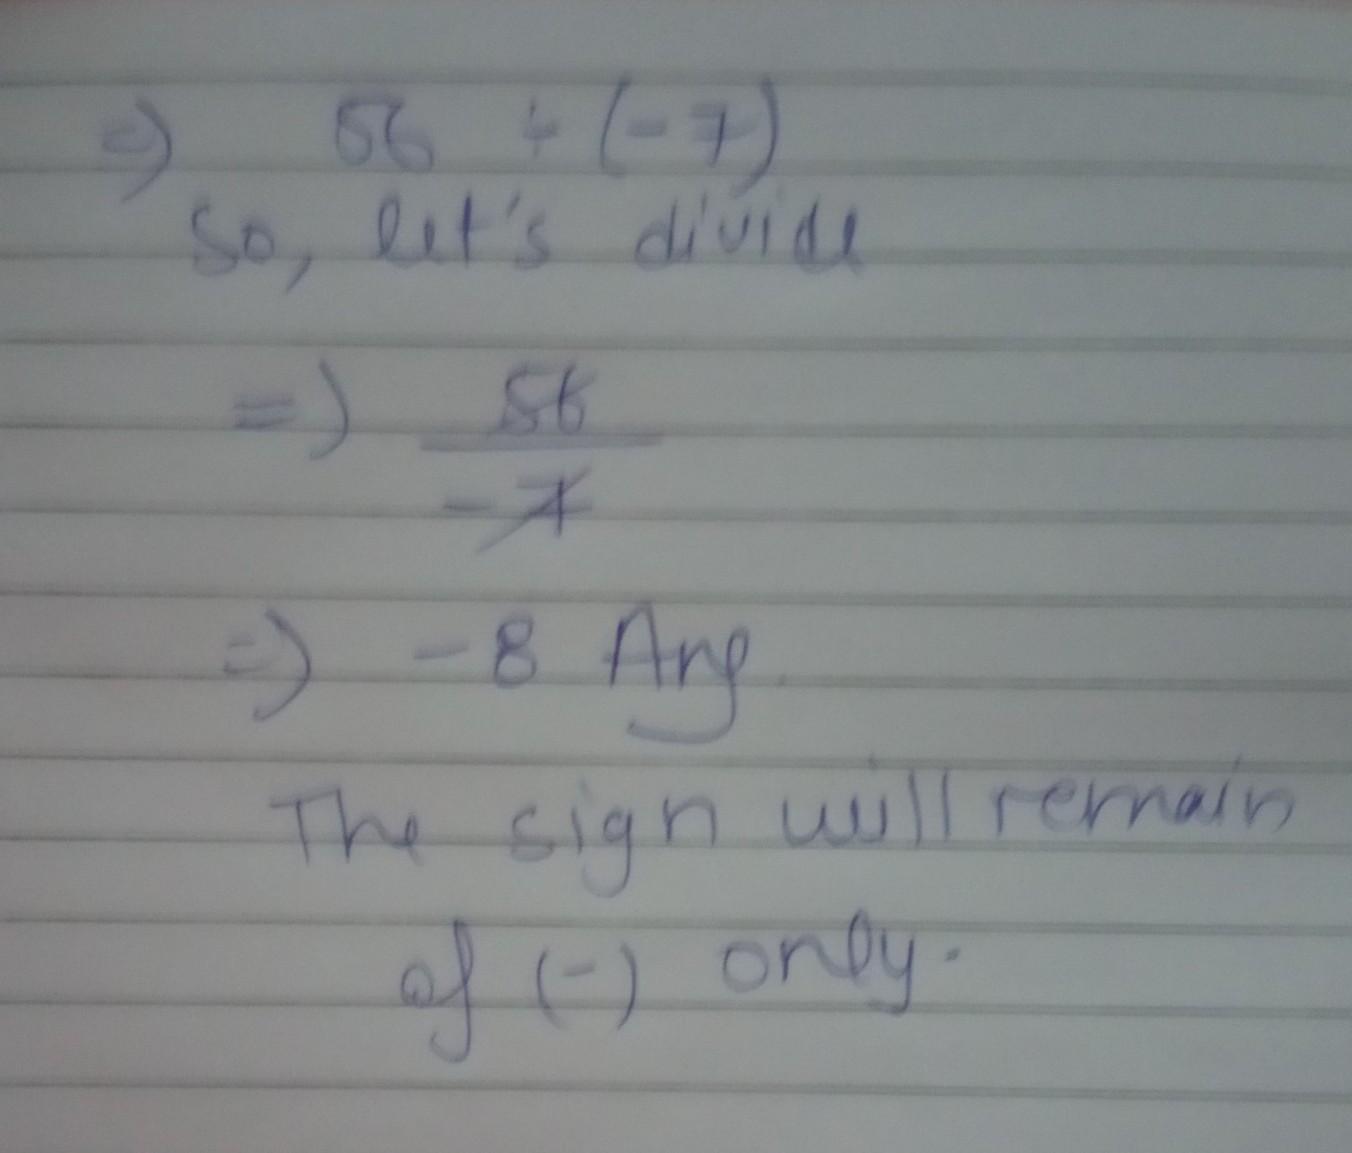 =) 56 ÷ (-7)
So, let's divide
=) 56
-7
=) -8 Ans
The sign will remain
of (-) only.